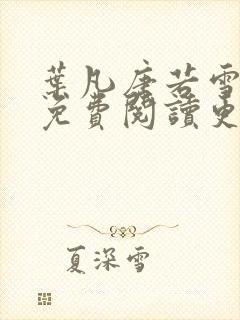 葉凡唐若雪
免費閱讀更
夏深雪